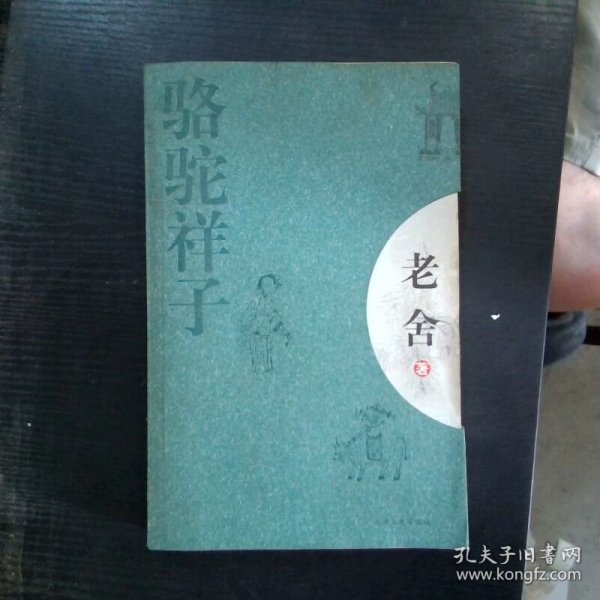 骆驼祥子
老舍
著
孔夫子旧书网
www.kongfz.com